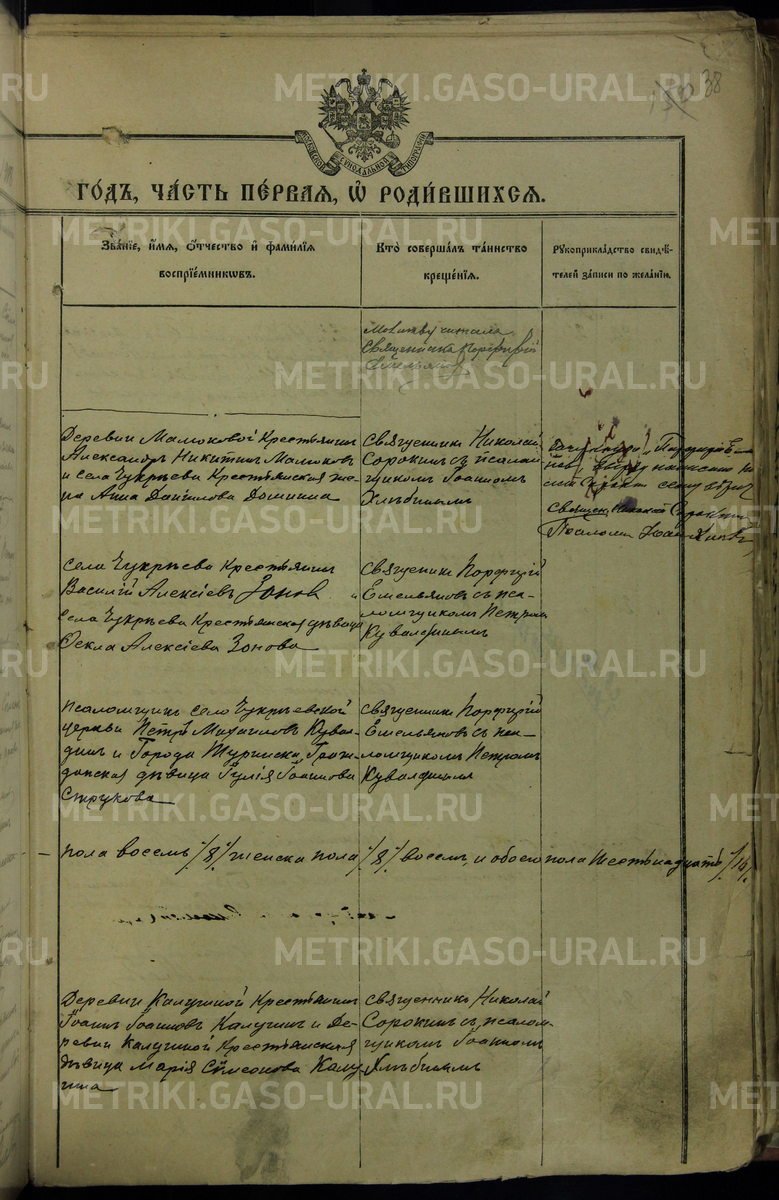 38
МОСКОВСКОЙ СѴНОДАЛЬНОЙ ТИПОГРАФІИ
ГОДЪ, ЧАСТЬ ПЕРВАЯ, Ѡ РОДИВШИХСЯ.
Званіе, имя, отчество и фамилія
воспріемниковъ.
Кто совершалъ таинство
крещенія.
Рукоприкладство свидѣ-
телей записи по желанію.
Молитву читалъ
Священникъ Порфирій
Деревни Малюковой Крестьянинъ
Александръ Никитинъ Малюковъ
и села Чукреева Крестьянская же-
на Анна Даніилова Дошина
Священникъ Николай
Сорокинъ съ псалом-
щикомъ Іоанномъ
Хлѣбинымъ
Священ. Николай Сорокинъ
Псалом. Іоан.
Села Чукреева Крестьянинъ
Василій Алексіевъ Зоновъ и
Села Чукреева Крестьянская дѣвица
Фекла Алексіева Зонова
Священникъ Порфирій
Емельяновъ съ пса-
ломщикомъ Петромъ
Кувалдинымъ
Псаломщикъ Село Чукреевской
церкви Петръ Михаиловъ Кува-
динъ и Города Туринска Граж-
данская дѣвица Іулія Іоаннова
Струкова
Священникъ Порфирій
Емельяновъ съ пса-
ломщикомъ Петромъ
Кувалдинымъ
пола восемь /8/ женска пола /8/ восемь, и обоего пола шестьнадцать /16/.
Деревни Калугиной Крестьянинъ
Іоаннъ Іоанновъ Калугинъ и Де-
ревни Калугиной Крестьянская
дѣвица Марія Сѵмеонова Калу-
гина
Священникъ Николай
Сорокинъ съ псалом-
щикомъ Іоанномъ
Хлѣбинымъ
METRIKI.GASO-URAL.RU